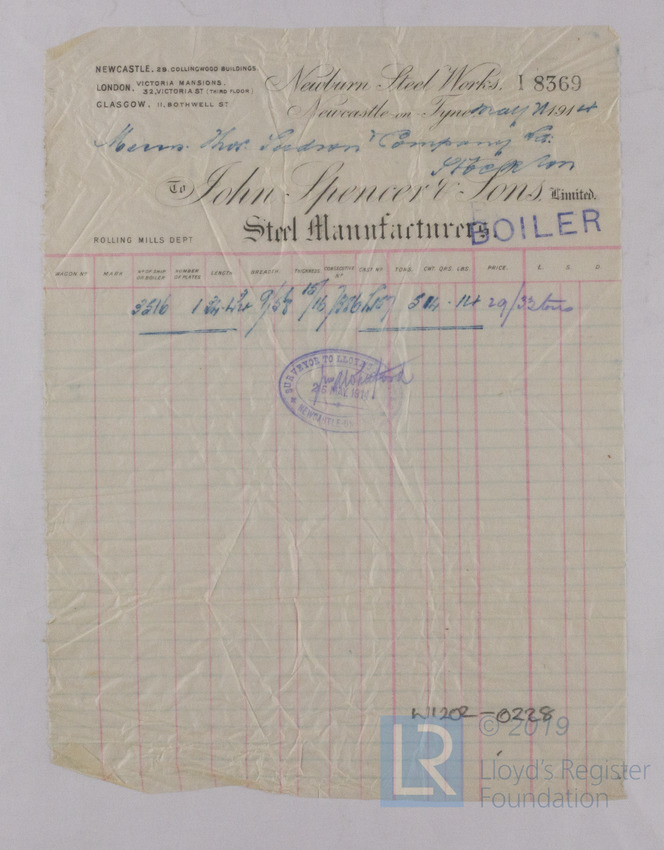 NEWCASTLE, 28, COLLINGWOOD BUILDINGS.
LONDON, VICTORIA MANSIONS, 32, VICTORIA ST (THIRD FLOOR)
GLASGOW, 11, BOTHWELL ST
Newburn Steel Works, I 8369
Newcastle on Tyne May 1914
Messrs Thos. Company
Stockton
To John Spencer & Sons, Limited.
ROLLING MILLS DEPT Steel Manufacturers
BOILER
WAGON No MARK No OF SHIP OR BOILER NUMBER OF PLATES LENGTH. BREADTH. THICKNESS CONSECUTIVE No CAST No TONS. CWT QRS. LBS. PRICE. £. S. D.
3516 1 5 4 . 14 29/33 tons
SURVEYOR TO LLOYD'S
26 MAY 1914
NEWCASTLE-ON
W1202-0228
© 2019
LR
Lloyd's Register
Foundation